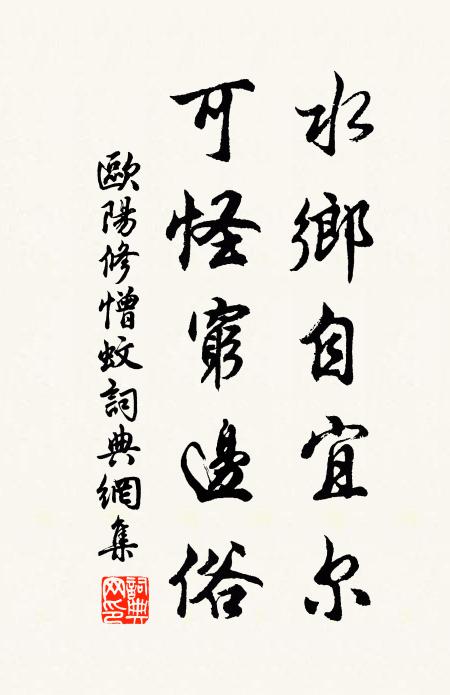 水鄉自宜尔
可怪窮邊俗
歐陽修憎蚊詞典網集
詞典网印